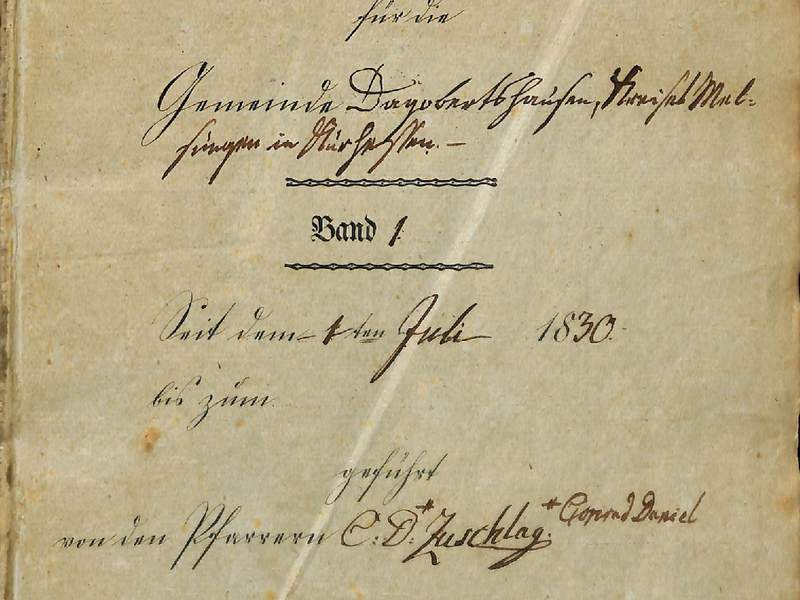 für die
Gemeinde Dagobertshausen, Kreises Mel-
sungen in Kurhessen. –
Band 1.
Seit dem 1ten Juli 1830.
bis zum
geführt
von den Pfarrern C: D:* Zuschlag. * Conrad Daniel